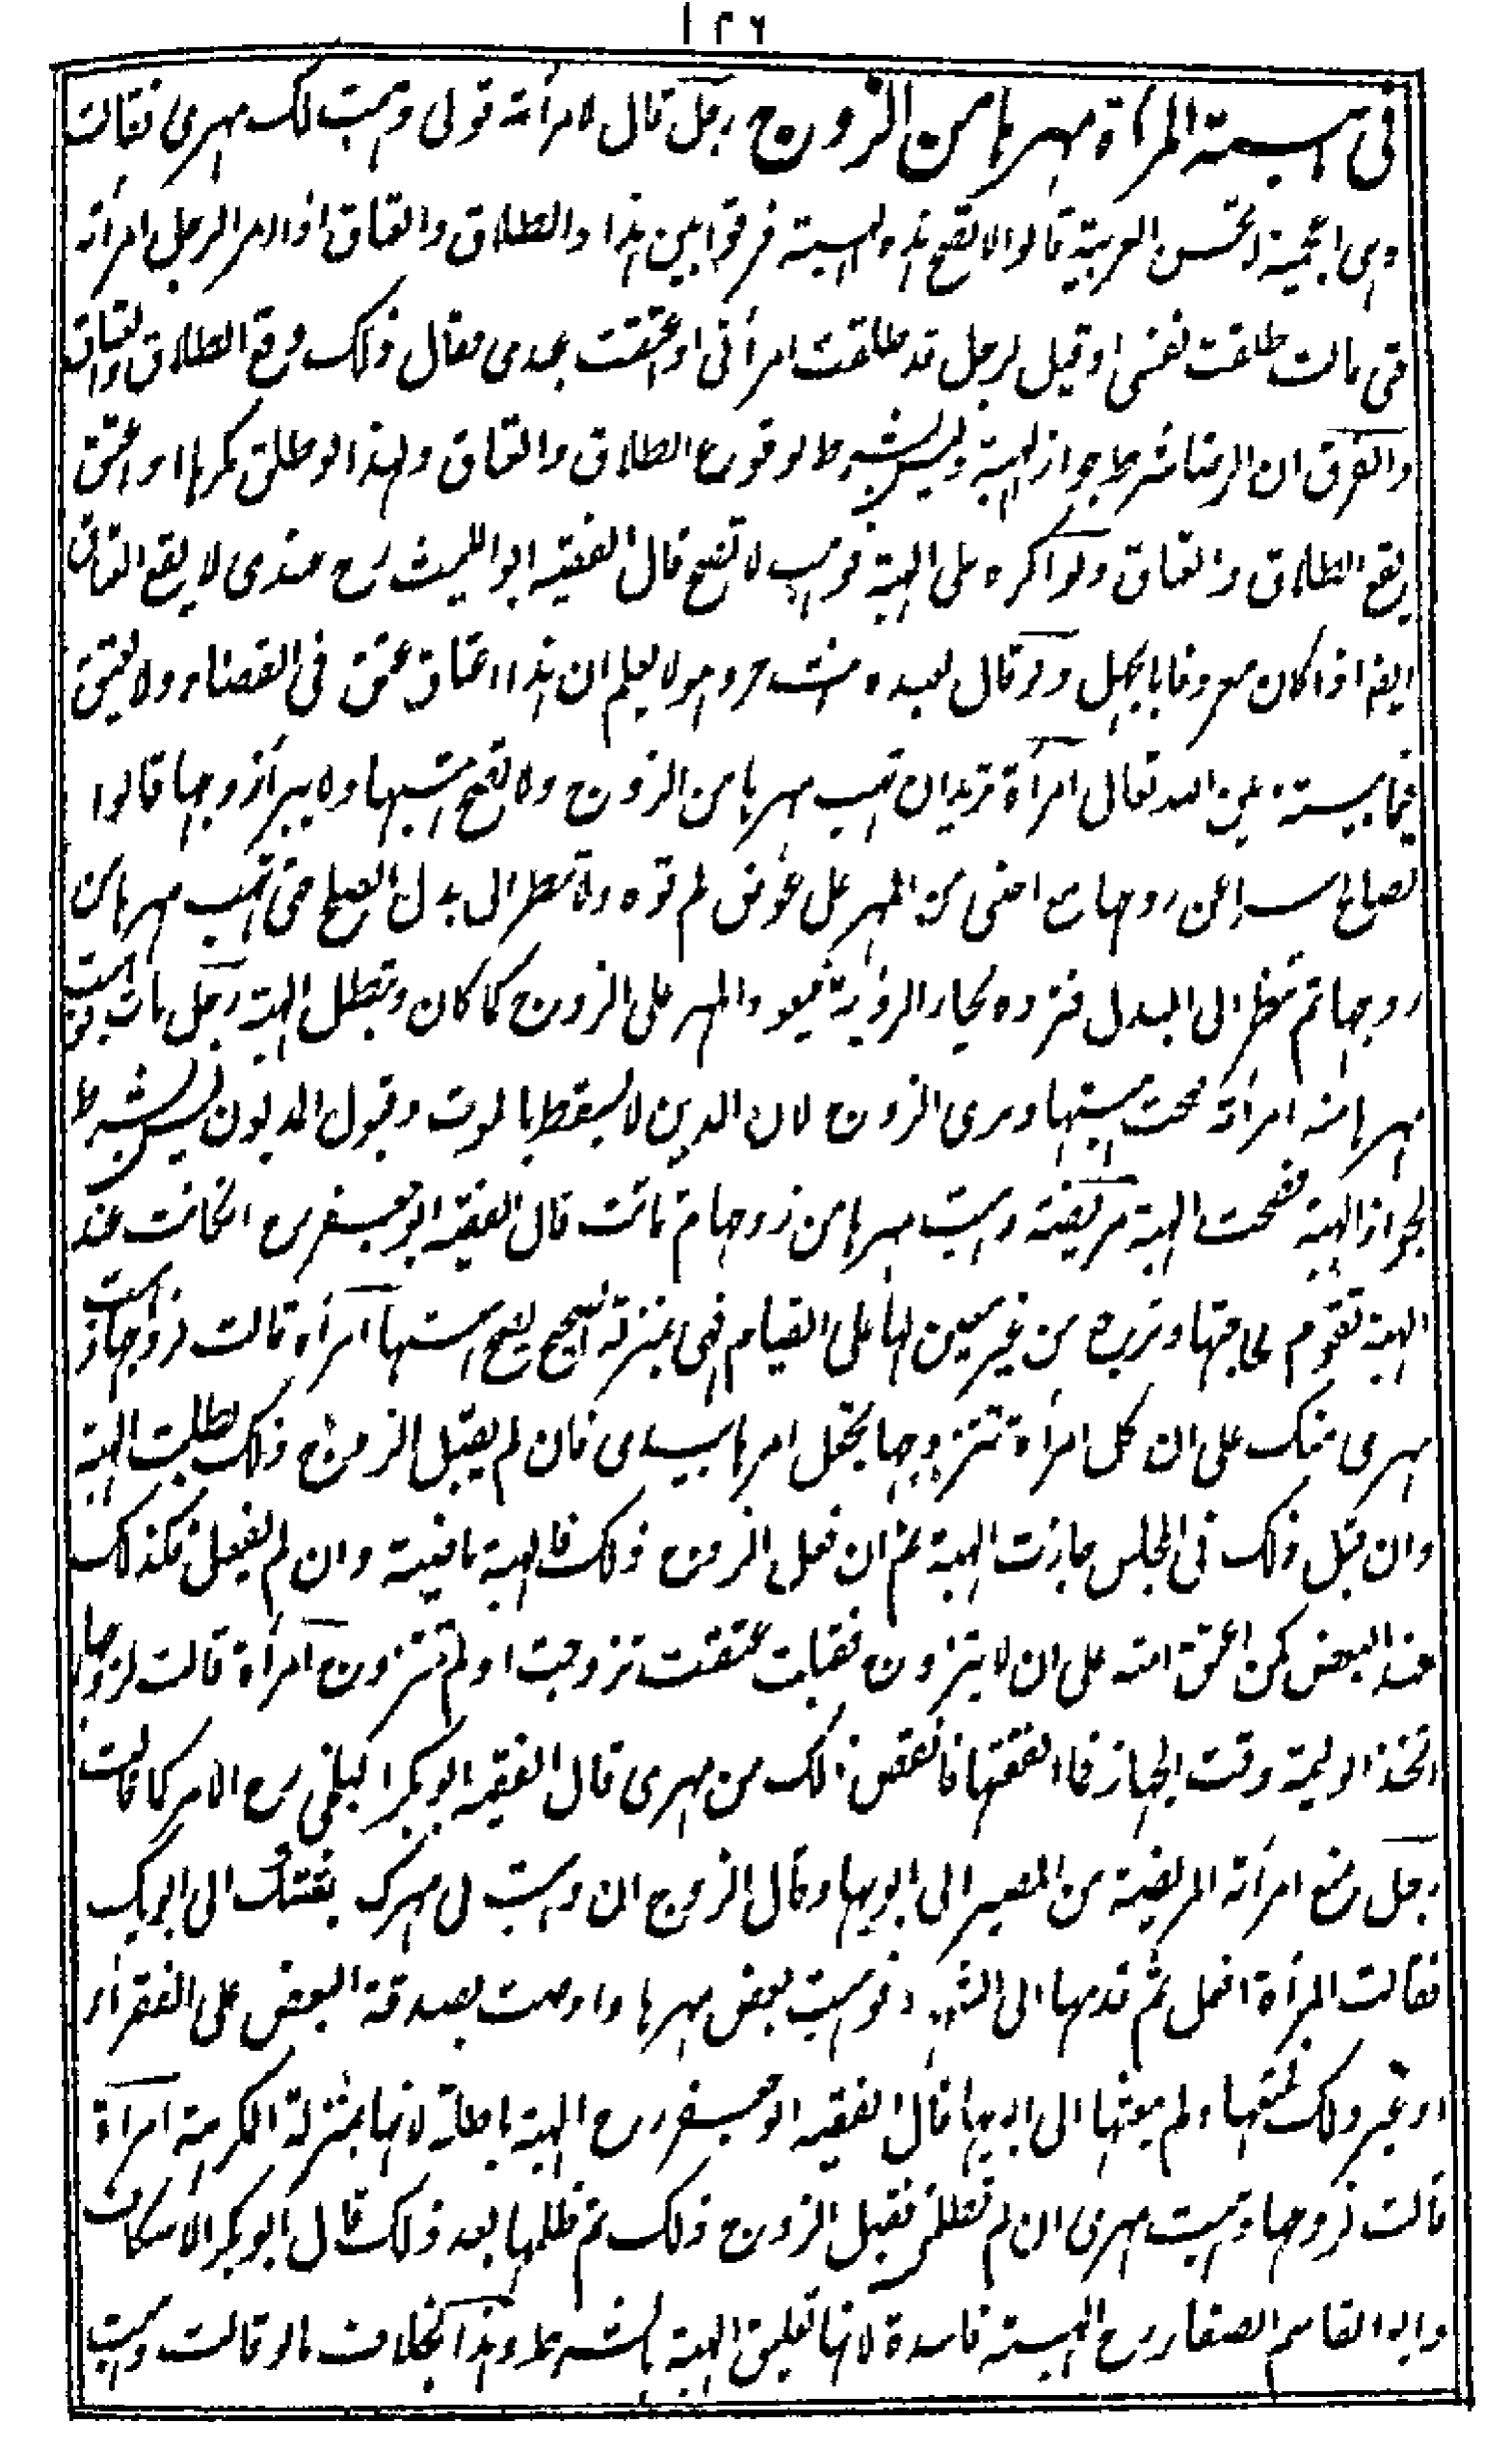 ١٢٦
فى هبة المرأة مهرها من الزوج رجل قال لامرأته قولى وهبت لك مهرى فقالت
وهى اعجمية لا تحسن العربية قالوا لا تصح هذه الهبة فرقوا بين هذا والطلاق والعتاق اذا امر الرجل امرأته
حتى قالت طلقت نفسى او قيل لرجل قد طلقت امرأتى او عتقت عبدى فقال ذلك وقع الطلاق والعتاق
والفرق ان الرضا شرط جواز الهبة وليس بشرط لوقوع الطلاق والعتاق ولهذا لو طلق مكرها او اعتق
يقع الطلاق والعتاق ولو اكره على الهبة فوهب لا تصح قال الفقيه ابو الليث رح عندى لا يقع العتاق
ايضا اذا كان معروفا بالجهل ولو قال لعبده انت حر وهو لا يعلم ان هذا اعتاق عتق فى القضاء ولا يعتق
فيما بينه وبين الله تعالى امرأة تريد ان تهب مهرها من الزوج ولا تصح هبتها ولا يبرأ زوجها قالوا
تصالح سرا عن زوجها مع اجنبى من المهر على عوض لم تره ولا تنظر الى بدل الصلح حتى تهب مهرها من
زوجها ثم تنظر الى البدل فترده بخيار الرؤية فيعود المهر على الزوج كما كان وتبطل الهبة رجل مات فوهبت
مهرها منه امرأته صحت هبتها وبرئ الزوج لان الدين لا يسقط بالموت وقبول المديون ليس بشرط
لجواز الهبة فصحت الهبة مريضة وهبت مهرها من زوجها ثم ماتت قال الفقيه ابو جعفر رح ان كانت عند
الهبة تقوم لحاجتها وترجع من غير معين لها على القيام فهى بمنزلة الصحيح يصح هبتها امرأة قالت لزوجها وهبت
مهرى منك على ان كل امرأة تتزوجها تجعل امرها بيدى فان لم يقبل الزوج ذلك بطلت الهبة
وان قبل ذلك فى المجلس جازت الهبة ثم ان فعل الزوج ذلك فالهبة ماضية وان لم يفعل فكذلك
عند البعض كمن اعتق امته على ان لا يتزوج فقبلت عتقت تزوجت او لم تتزوج امرأة قالت لزوجها
اتخذ الوليمة وقت الجهاز فما انفقتها فانقص ذلك من مهرى قال الفقيه ابو بكر البلخى رح الامر كما قالت
رجل منع امرأته المريضة من المصير الى ابويها وقال الزوج ان وهبت لى مهرك بعثتك الى ابويك
فقالت المرأة افعل ثم قدمها الى الشهود فوهبت بعض مهرها واوصت بصدقة البعض على الفقراء
او غير ذلك فمنعها ولم يبعثها الى ابويها قال الفقيه ابو جعفر رح الهبة باطلة لانها بمنزلة المكرهة امرأة
قالت لزوجها وهبت مهرى ان لم تظلمنى فقبل الزوج ذلك ثم ظلمها بعد ذلك قال ابو بكر الاسكاف
وابو القاسم الصفار رح الهبة فاسدة لانها تعليق الهبة بالشرط وهذا بخلاف ما لو قالت وهبت